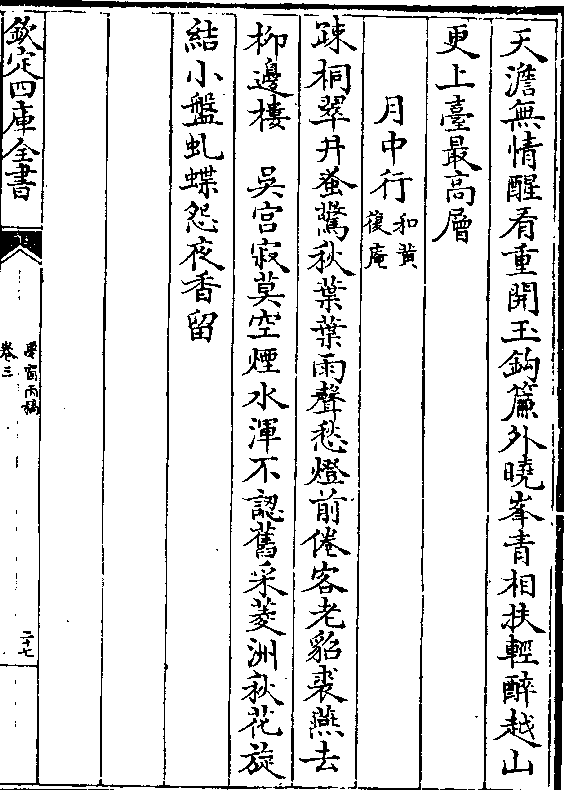 天澹無情醒看重開玉鈎簾外曉峯青相扶輕醉越山
更上臺最高層
月中行和黃復庵
疎桐翠井蚤驚秋葉葉雨聲愁燈前倦客老貂裘燕去
柳邊樓　吳宮寂莫空煙水渾不認舊采菱洲秋花旋
結小盤虬蝶怨夜香留
欽定四庫全書
夢窗丙稿
卷三
二十七